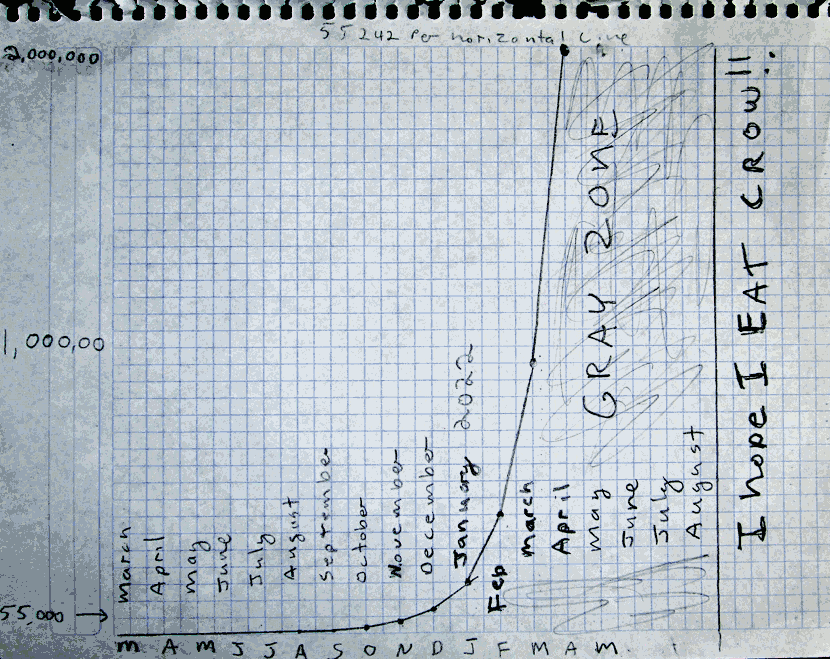 55242 Per horizontal Line
2,000,000
1,000,00
55,000
March
April
may
June
July
August
September
October
November
December
January 2022
Feb
march
April
may
June
July
August
GRAY ZONE
I hope I EAT CROW!!
m A m J J A S O N D J F M A M